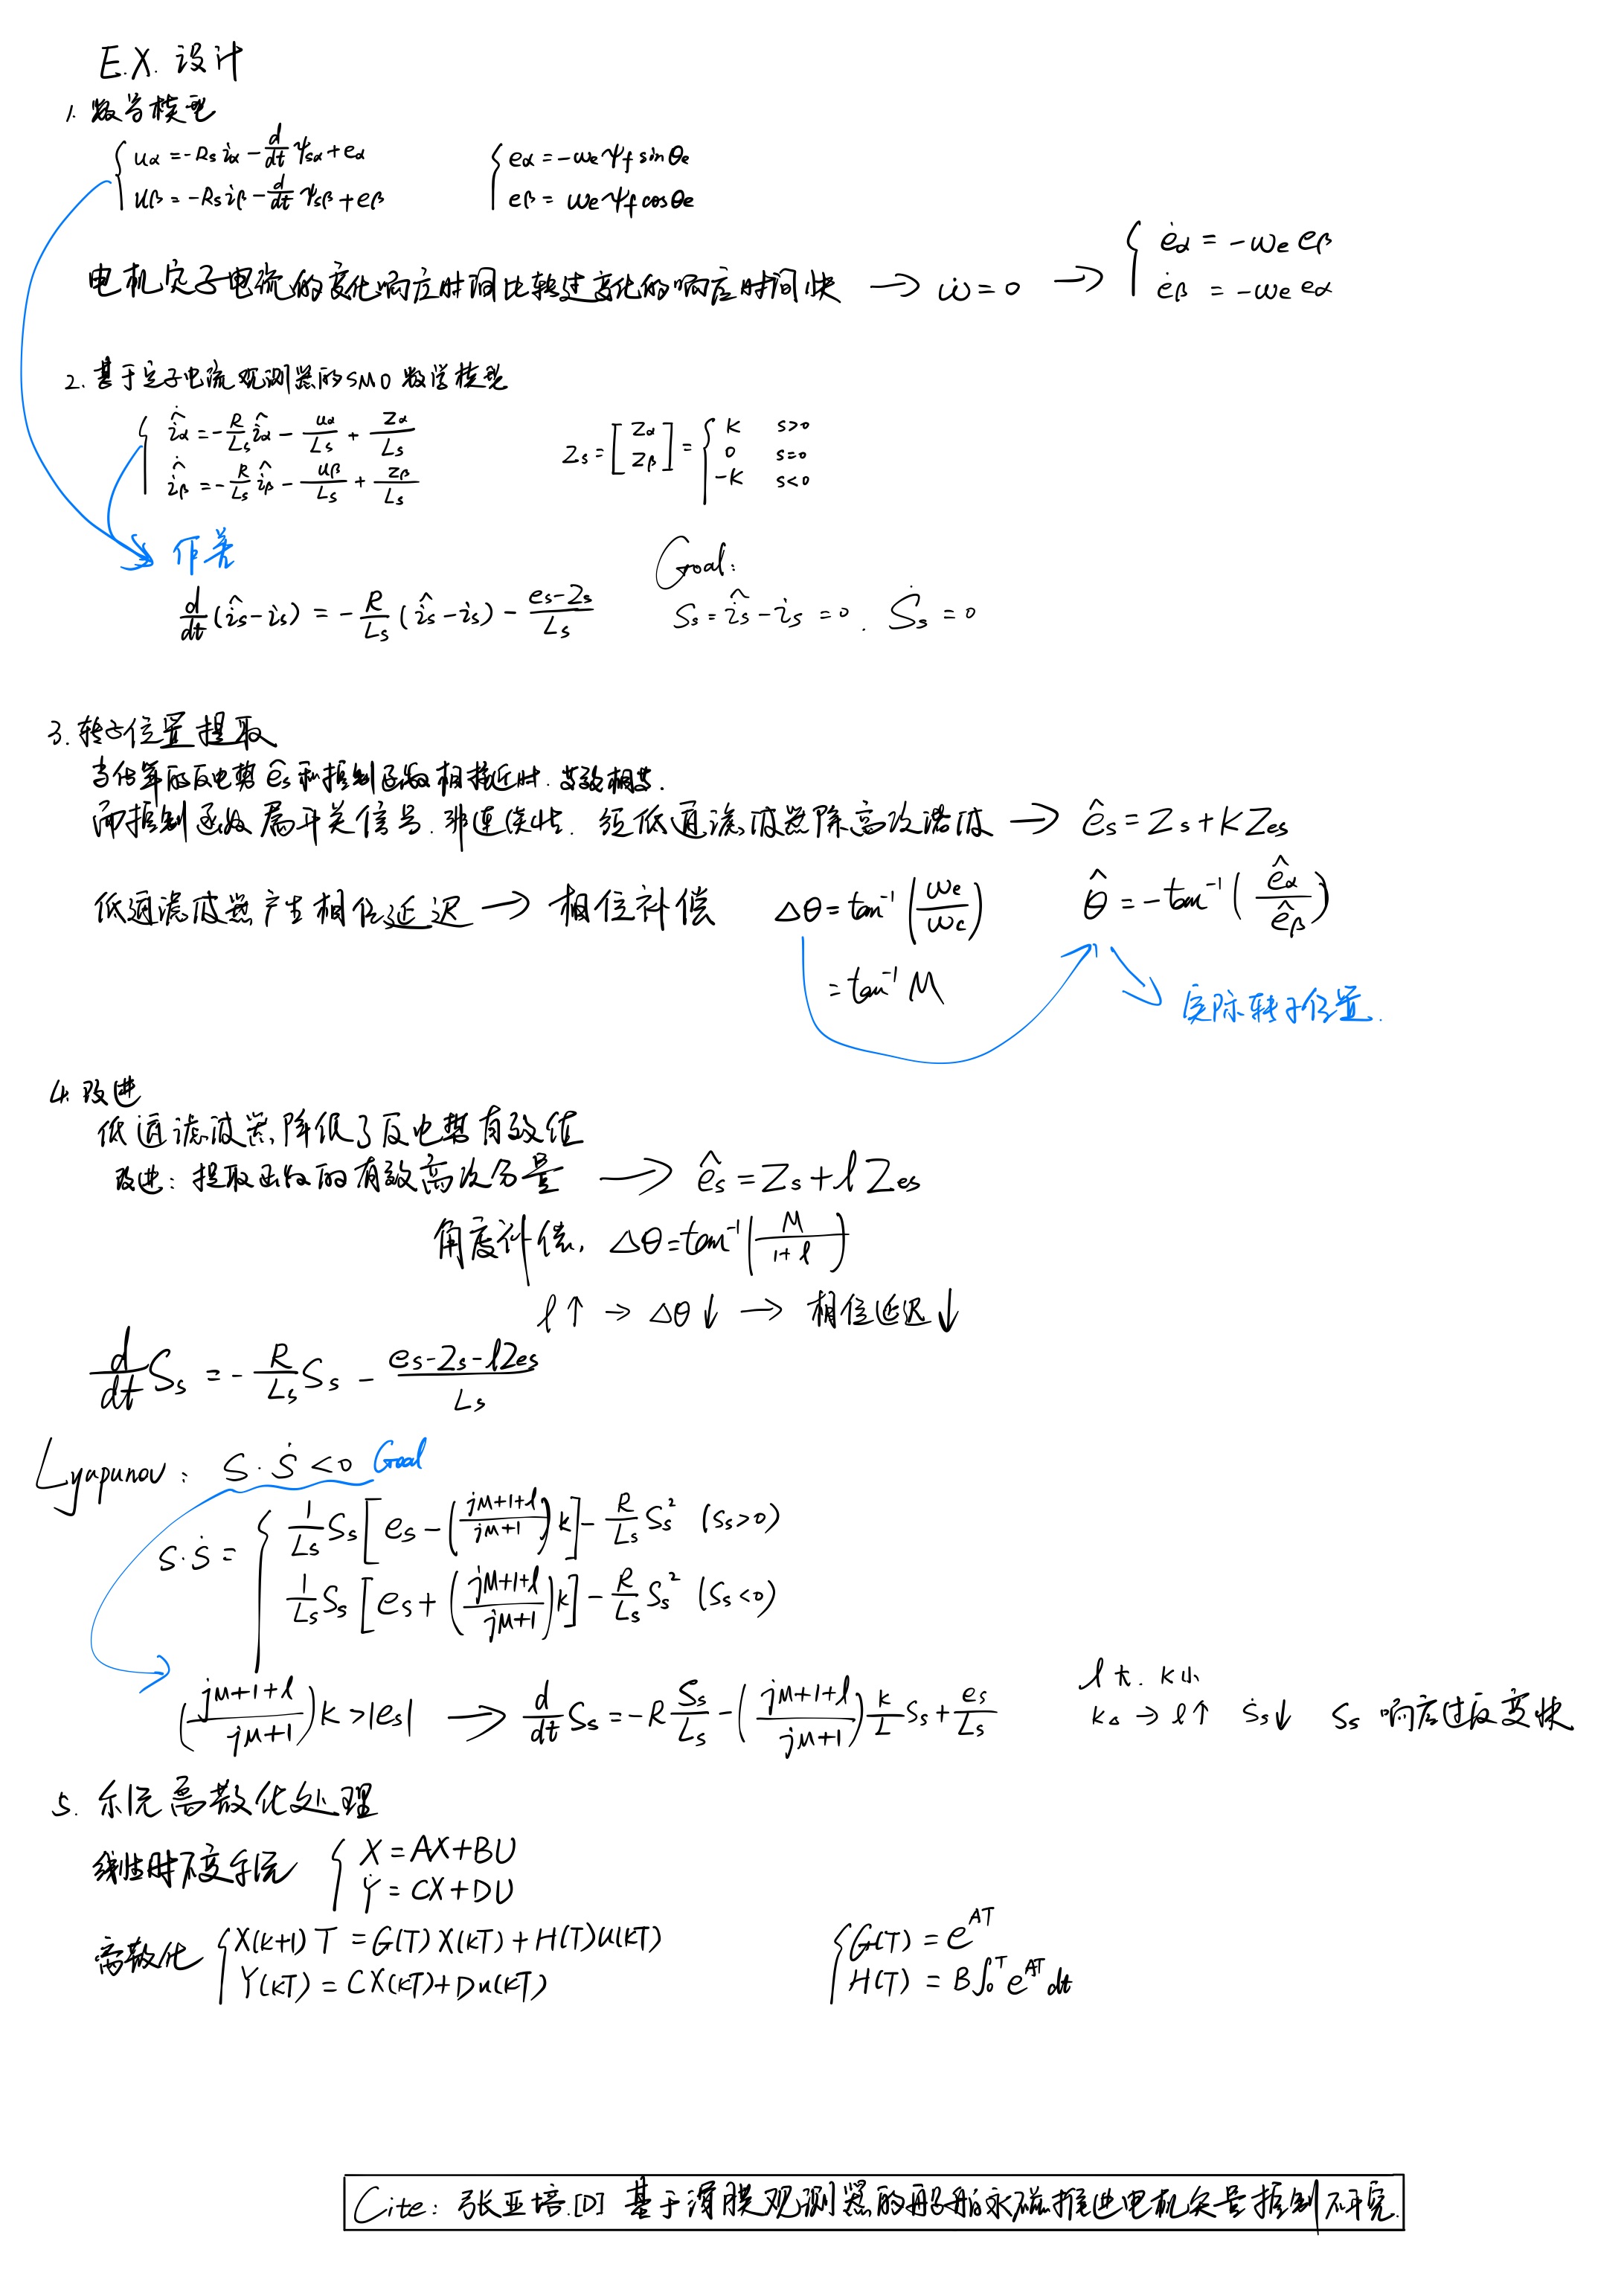 E.X. 设计
1. 数学模型
{ uα = -Rs iα - d/dt ψsα + eα
uβ = -Rs iβ - d/dt ψsβ + eβ
{ eα = -ωe ψf sinθe
eβ = ωe ψf cosθe
电机定子电流的变化响应时间比转速变化的响应时间快 → ω̇ = 0 → { ėα = -ωe eβ
ėβ = -ωe eα
2. 基于定子电流观测器的SMO数学模型
{ î̇α = -R/Ls îα - uα/Ls + Zα/Ls
î̇β = -R/Ls îβ - uβ/Ls + Zβ/Ls
Zs = [Zα Zβ] = { K s>0
0 s=0
-K s<0
作差
d/dt (îs - is) = -R/Ls (îs - is) - (es - Zs)/Ls
Goal:
Ss = îs - is = 0. Ṡs = 0
3. 转子位置提取
当估算的反电势 ês 和控制函数相接近时. 等效相等.
而控制函数属开关信号. 非连续性. 经低通滤波器除高次谐波 → ês = Zs + K Zes
低通滤波器产生相位延迟 → 相位补偿 Δθ = tan⁻¹(ωe/ωc) θ̂ = -tan⁻¹(êα/êβ)
= tan⁻¹ M
实际转子位置.
4. 改进
低通滤波器降低了反电势有效值
改进: 提取函数的有效高次分量 → ês = Zs + l Zes
角度补偿, Δθ = tan⁻¹(M/(1+l))
l↑ → Δθ↓ → 相位延迟↓
d/dt Ss = -R/Ls Ss - (es - Zs - lZes)/Ls
Lyapunov: S·Ṡ < 0 Goal
S·Ṡ = { 1/Ls Ss [es - ((jM+1+l)/(jM+1))k] - R/Ls Ss² (Ss>0)
1/Ls Ss [es + ((jM+1+l)/(jM+1))k] - R/Ls Ss² (Ss<0)
((jM+1+l)/(jM+1))k > |es| → d/dt Ss = -R Ss/Ls - ((jM+1+l)/(jM+1)) k/L Ss + es/Ls
l大. K小
→ l↑ Ṡs↓ Ss 响应速度变快
5. 系统离散化处理
线性时不变系统 { X = AX+BU
Ẏ = CX+DU
离散化 { X(k+1)T = G(T)X(kT)+H(T)u(kT)
Y(kT) = CX(kT)+Du(kT)
{ G(T) = e^AT
H(T) = B∫₀ᵀ e^AT dt
Cite: 张亚培.[D] 基于滑膜观测器的船舶永磁推进电机矢量控制研究.